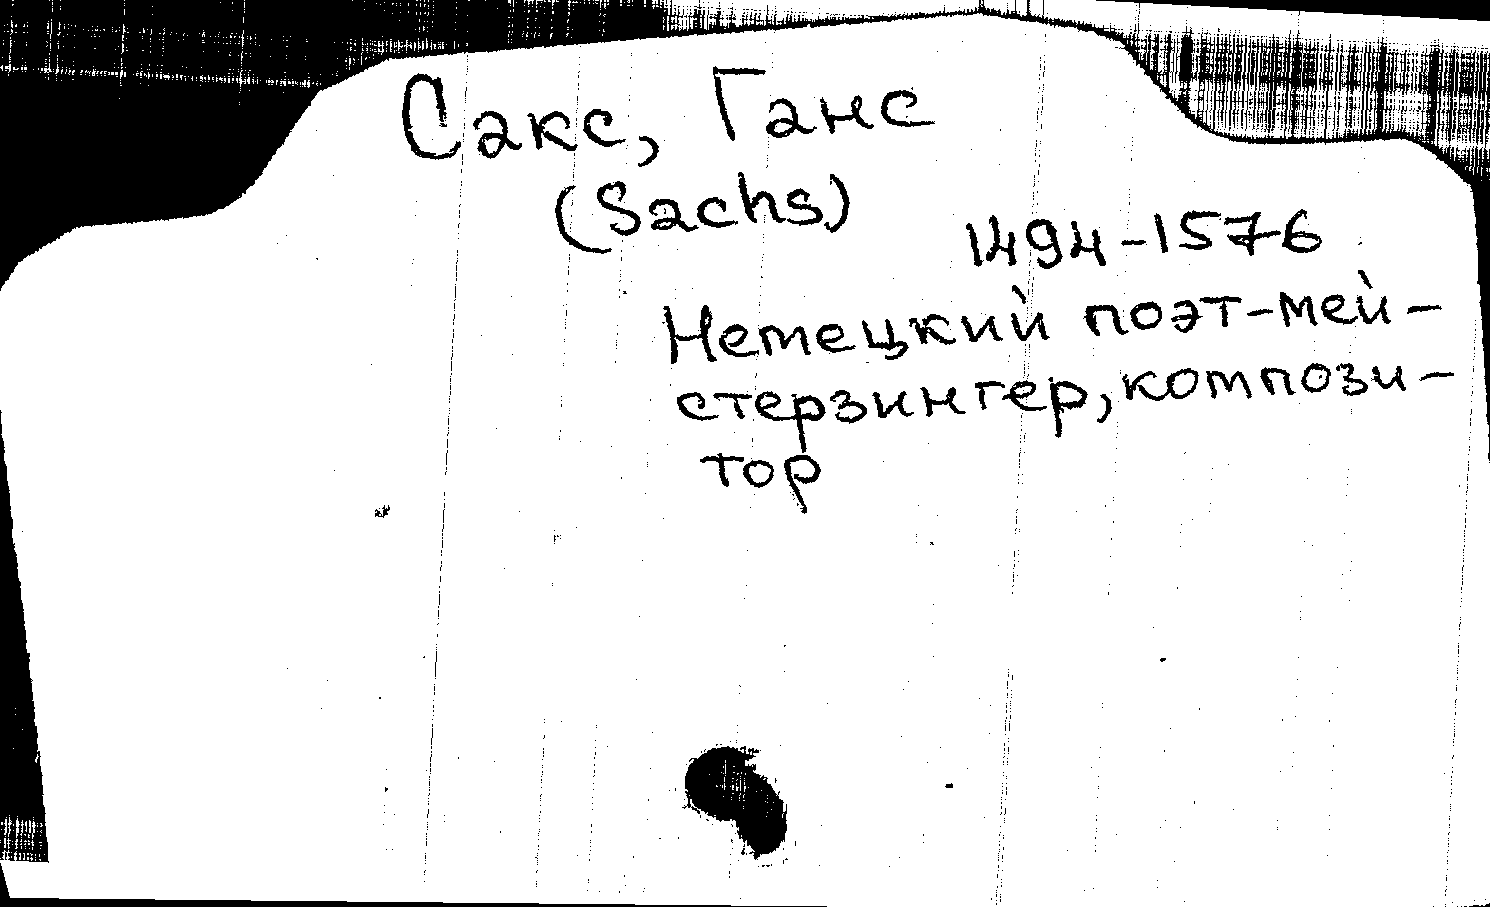 Сакс, Ганс
(Sachs)
1494-1576
Немецкий поэт-мей-
стерзингер, компози-
тор